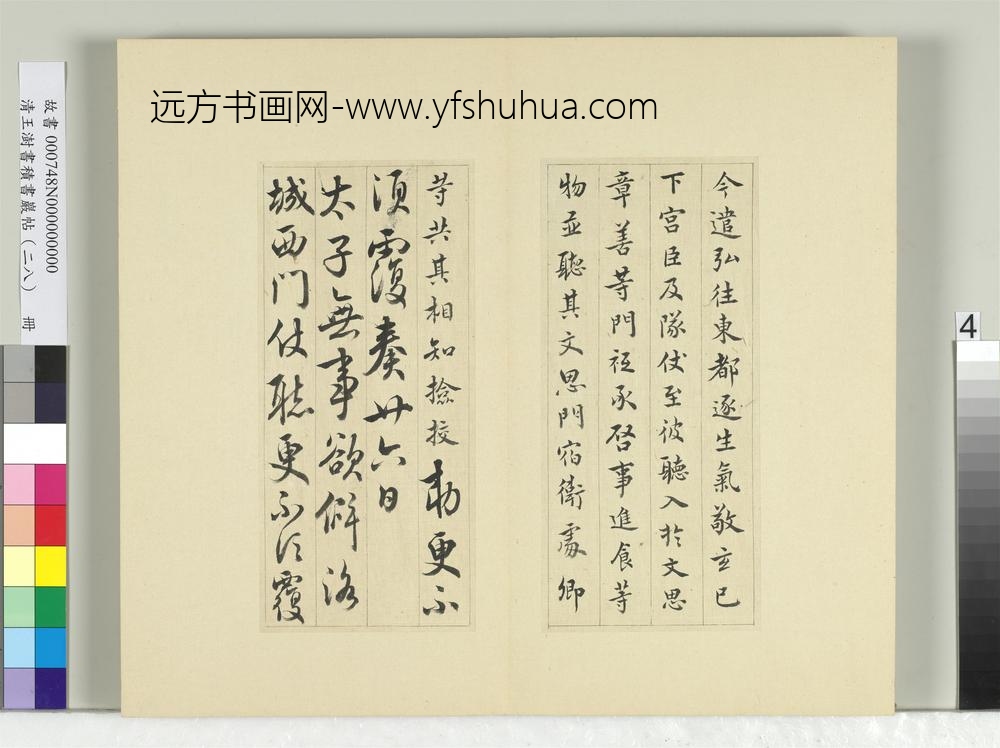 远方书画网-www.yfshuhua.com
故書 000748N000000000
清王澍書積書巖帖(二八) 冊
4
今遣弘往東都逐生氣敬玄已
下宮臣及隊仗至彼聽入於文思
章善等門祗承啓事進食等
物並聽其文思門宿衛處卿
等共其相知撿挍勑更不
須覆奏廿六日
太子無事欲僻洛
城西門仗聽更不須覆